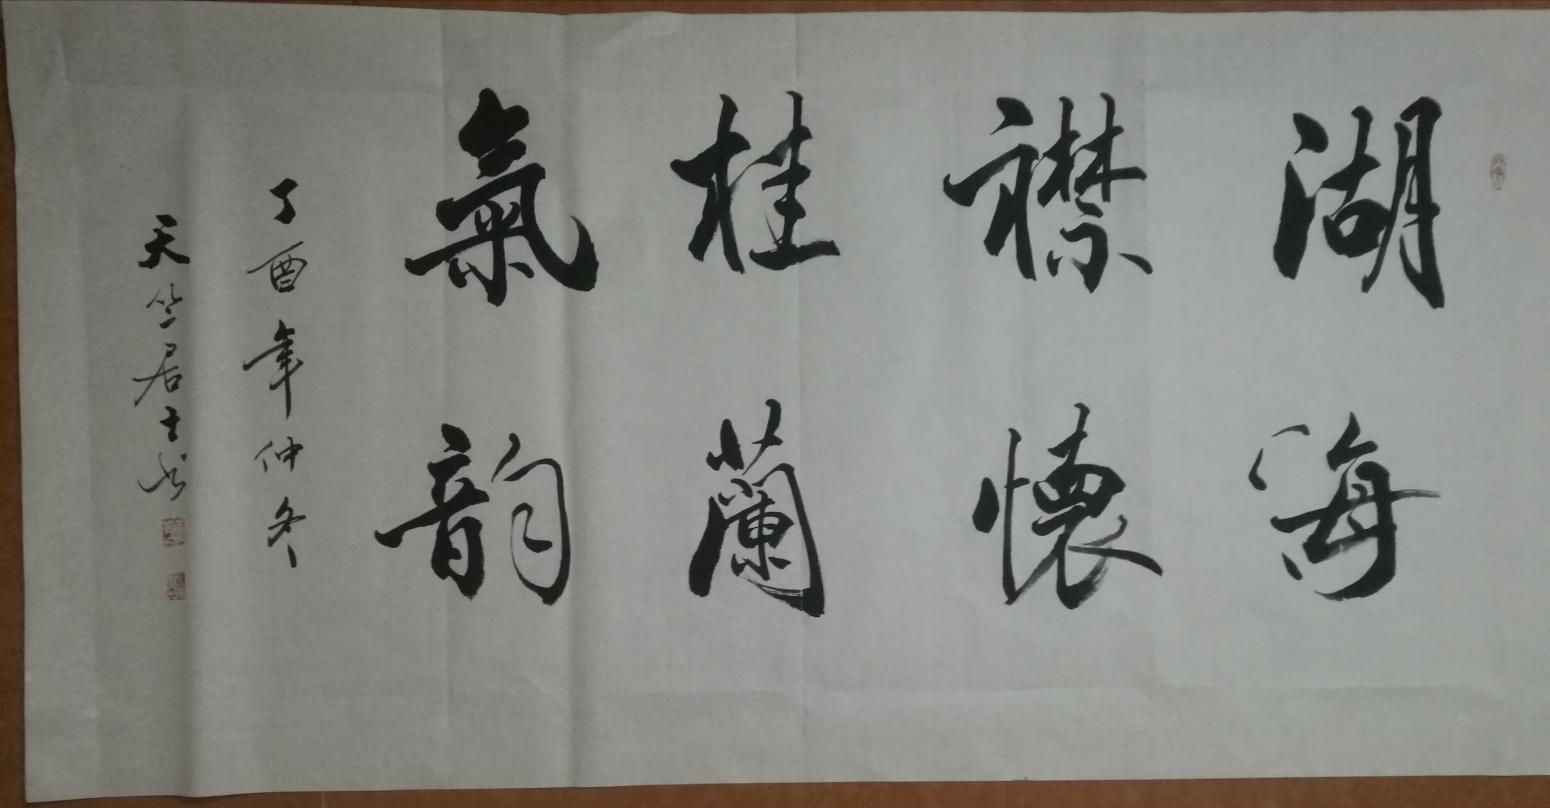 湖海
襟懷
桂蘭
氣韵
丁酉年仲冬
天竺居士书